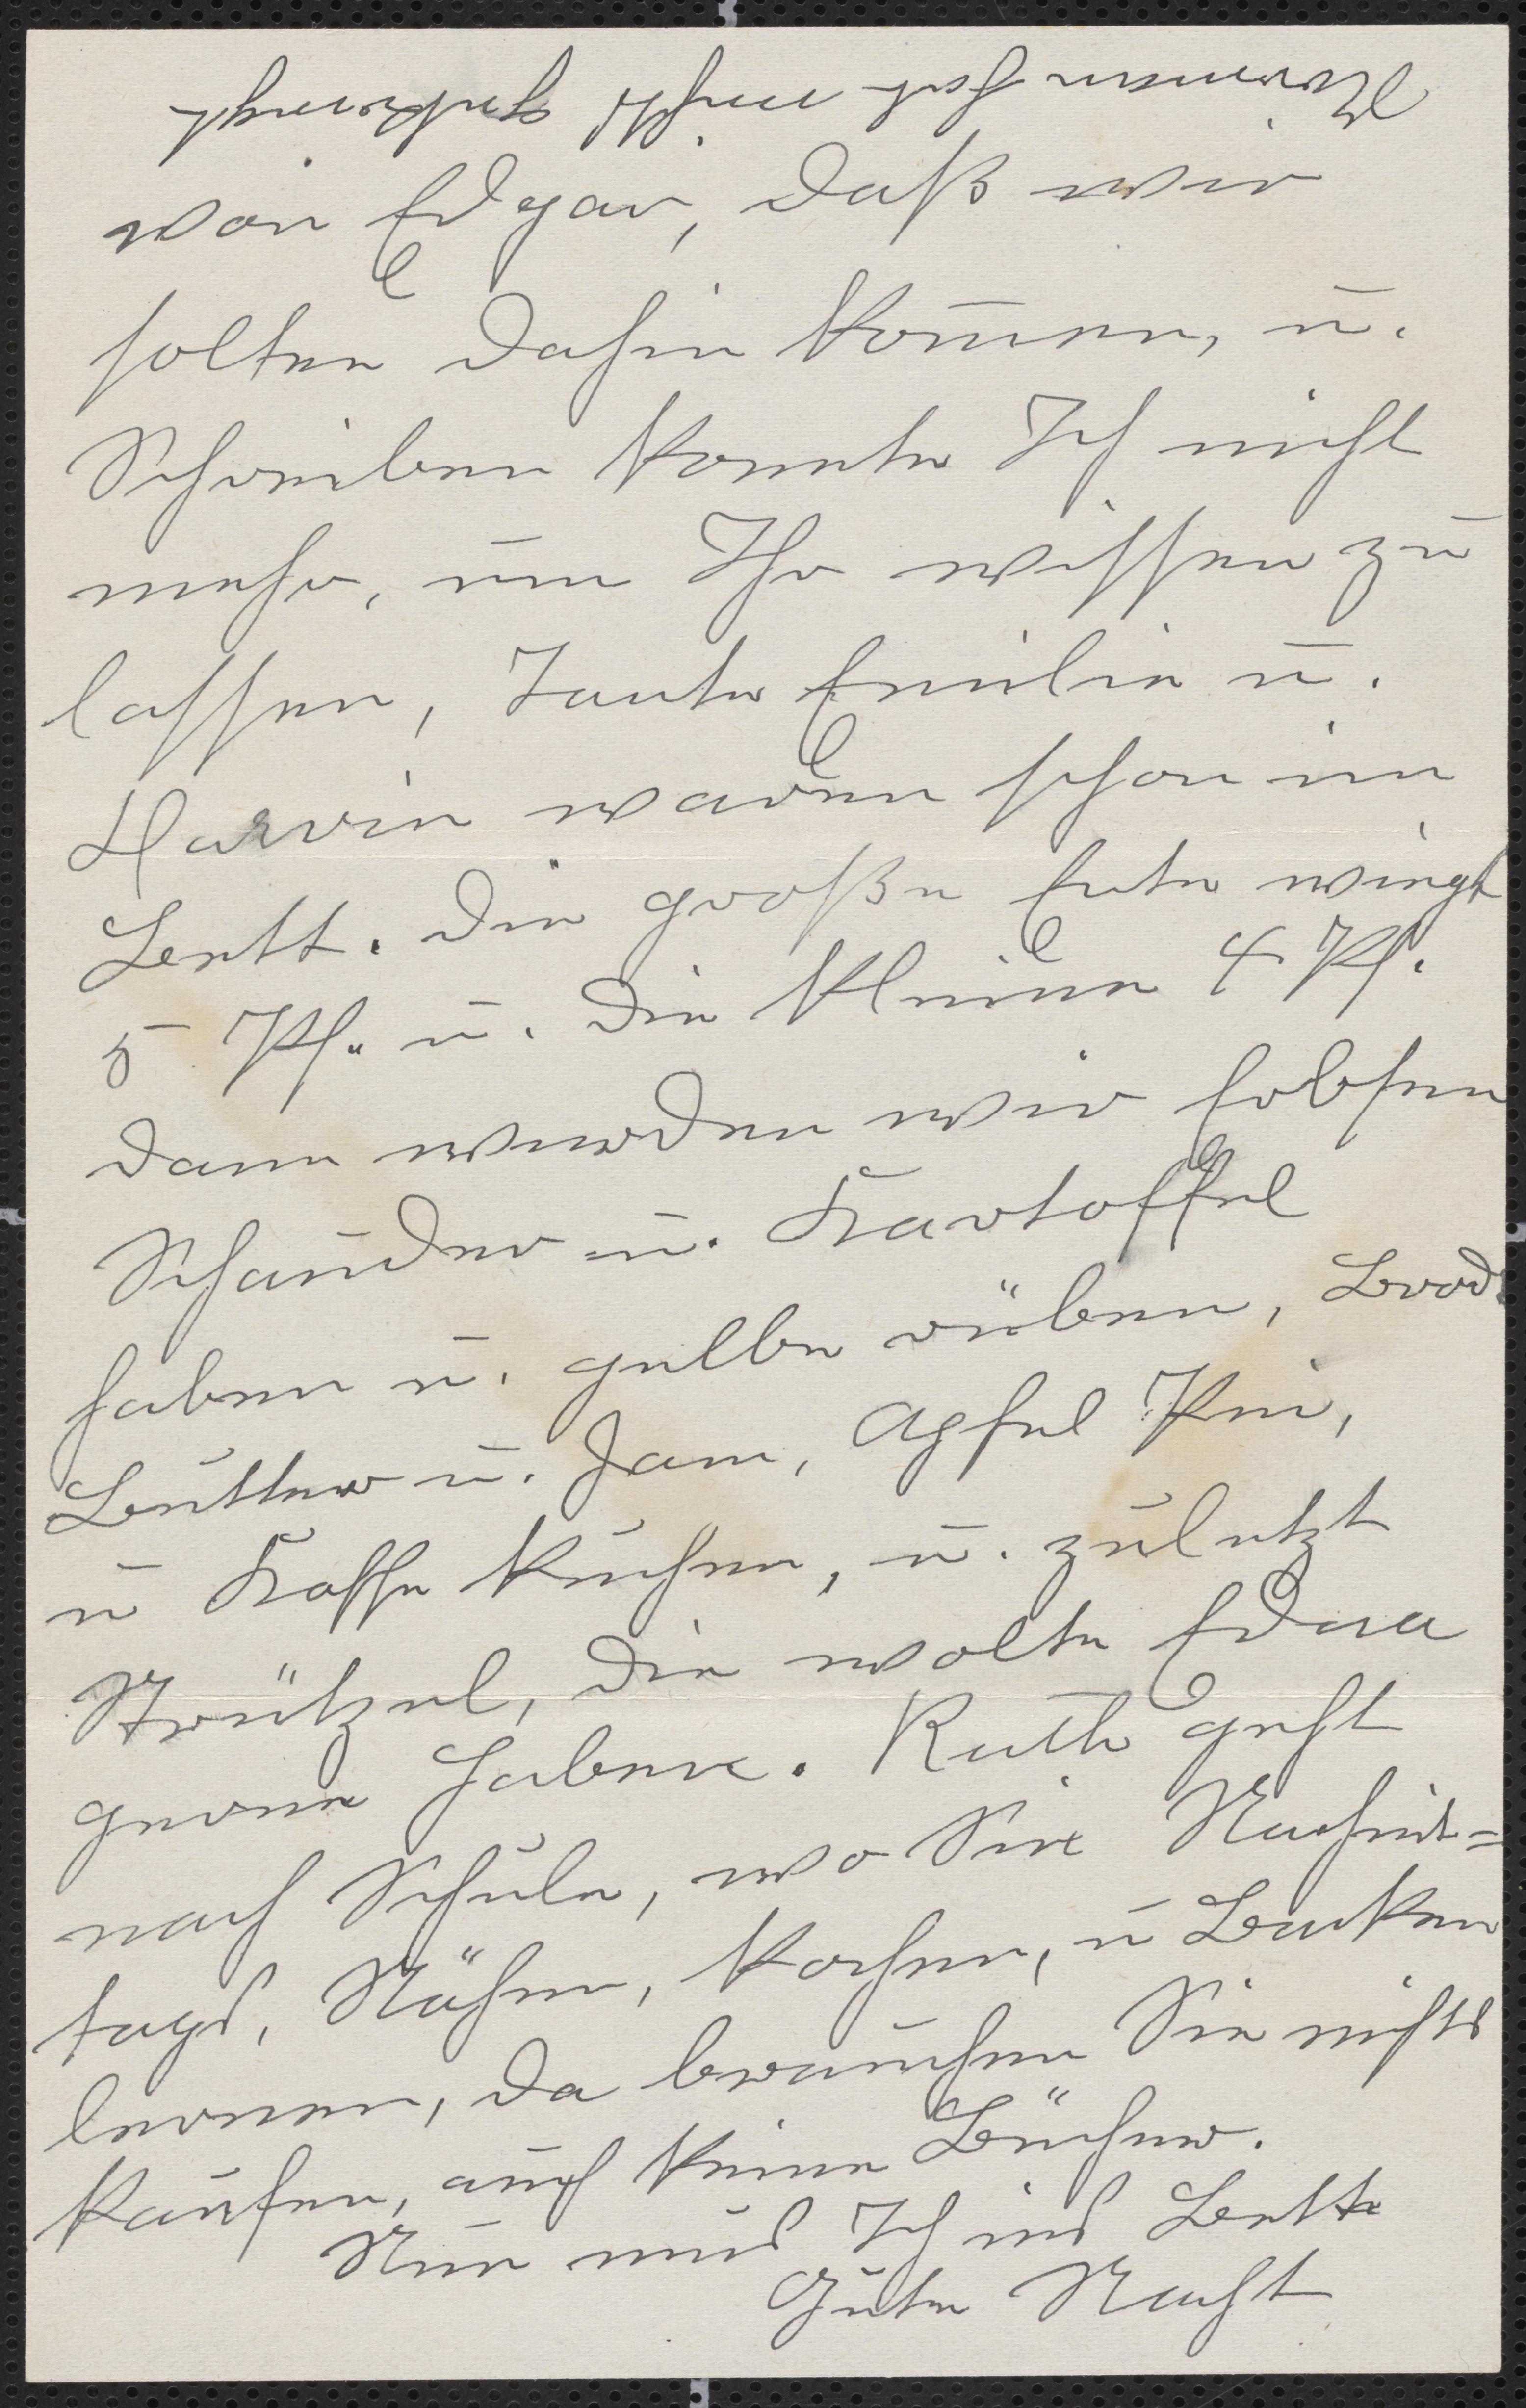 Norman hat nicht gebracht
von Edgar, daß wir
solten dahin kom̄en, u.
Schreiben konnte Ich nicht
mehr, um Ihr wissen zu
lassen, Tante Emilie u.
Marvin waren schon im
Bett. Die große Ente wiegt
5 Pf. u. die kleine 4 Pf.
dann wurden wir Erbsen
Schauder u. Kartoffel
haben u. gelbe rüben, Brod.
Butter u. Jam, Apfel Pei,
u Kaffe kuchen, u. zuletzt
Strützel, die wolte Edna
gerne haben. Ruth geht
nach Schule, wo Sie Nachmit=
tags, Nähen, kochen, u Backen
lernen, da brauchen Sie nichts
kaufen, auch keine Bücher.
Nun mus Ich ins Bett
Gute Nacht